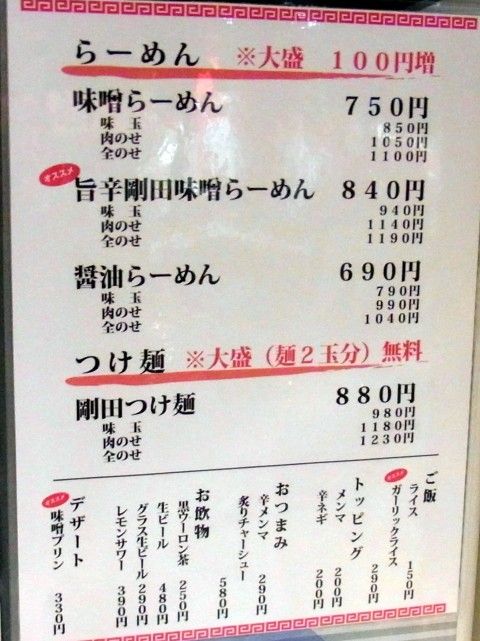 らーめん ※大盛 100円増
味噌らーめん 750円
味玉 850円
肉のせ 1050円
全のせ 1100円
オススメ
旨辛剛田味噌らーめん 840円
味玉 940円
肉のせ 1140円
全のせ 1190円
醤油らーめん 690円
味玉 790円
肉のせ 990円
全のせ 1040円
つけ麺 ※大盛(麺2玉分)無料
剛田つけ麺 880円
味玉 980円
肉のせ 1180円
全のせ 1230円
ご飯
ライス 150円
オススメ
ガーリックライス 290円
トッピング
メンマ 200円
辛ネギ 200円
おつまみ
辛メンマ 290円
炙りチャーシュー 580円
お飲物
黒ウーロン茶 250円
生ビール 480円
グラス生ビール 290円
レモンサワー 390円
デザート
オススメ
味噌プリン 330円